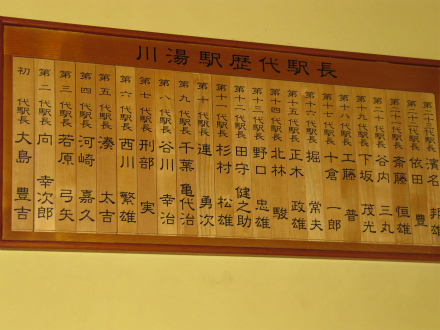 川湯駅歴代駅長
初 代駅長 大島 豊吉
第二 代駅長 向 幸次郎
第三 代駅長 若原 弓矢
第四 代駅長 河崎 嘉久
第五 代駅長 湊 太吉
第六 代駅長 西川 繁雄
第七 代駅長 刑部 実
第八 代駅長 谷川 幸治
第九 代駅長 千葉 亀代治
第十 代駅長 連 勇次
第十一 代駅長 杉村 松雄
第十二 代駅長 田守 健之助
第十三 代駅長 野口 忠雄
第十四 代駅長 北林 駿
第十五 代駅長 正木 政雄
第十六 代駅長 堀 常夫
第十七 代駅長 十倉 一郎
第十八 代駅長 工藤 普
第十九 代駅長 下坂 茂光
第二十 代駅長 谷内 三丸
第二十一 代駅長 斎藤 恒雄
第二十 代駅長 依田 豊
代駅長 濱名 邦雄